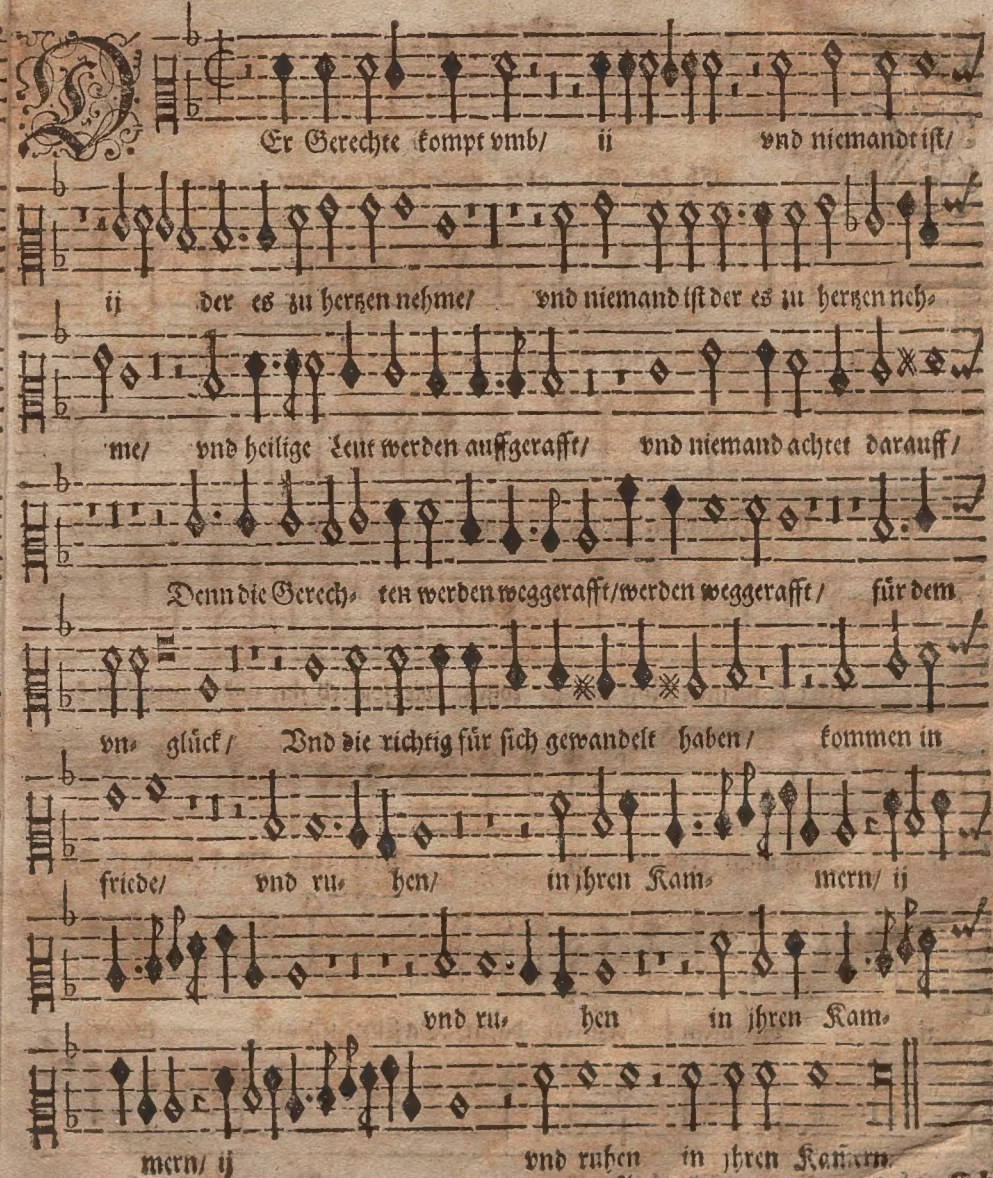 DEr Gerechte kompt vmb/ ij vnd niemandt ist/
ij der es zu hertzen nehme/ vnd niemand ist der es zu hertzen neh-
me/ vnd heilige Leut werden auffgerafft/ vnd niemand achtet darauff/
Denn die Gerech- ten werden weggerafft/ werden weggerafft/ für dem
vn- glück/ Vnd die richtig für sich gewandelt haben/ kommen in
friede/ vnd ru- hen/ in jhren Kam- mern/ ij
vnd ru- hen in jhren Kam-
mern/ ij vnd ruhen in jhren Kam̄ern.